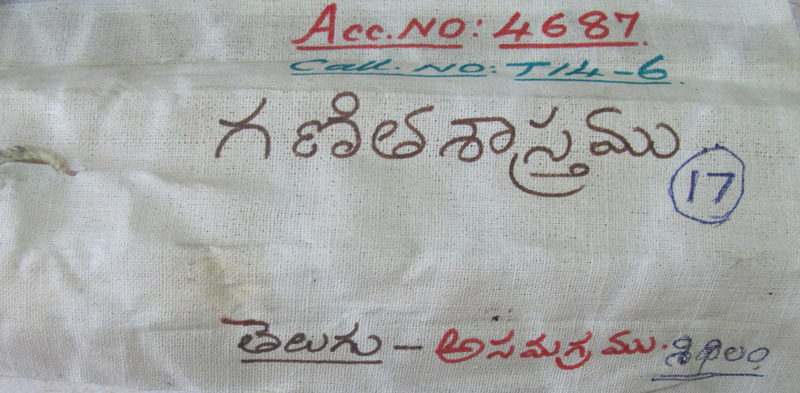 Acc.NO: 4687.
Call. NO: T14-6
గణితశాస్త్రము
17
తెలుగు - అసమగ్రము. శిథిలం